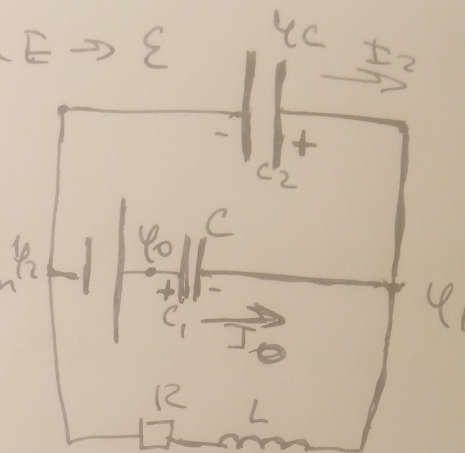 E → ε
4C
I₂
-
+
C₂
φ₂
φ₀
C
+
-
C₁
I₀
φ₁
R
L